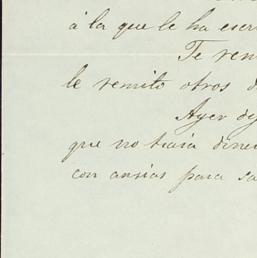 á la que le ha escri
Te rem
le remito otros d
Ayer dej
que no traia diner
con ansias para sa